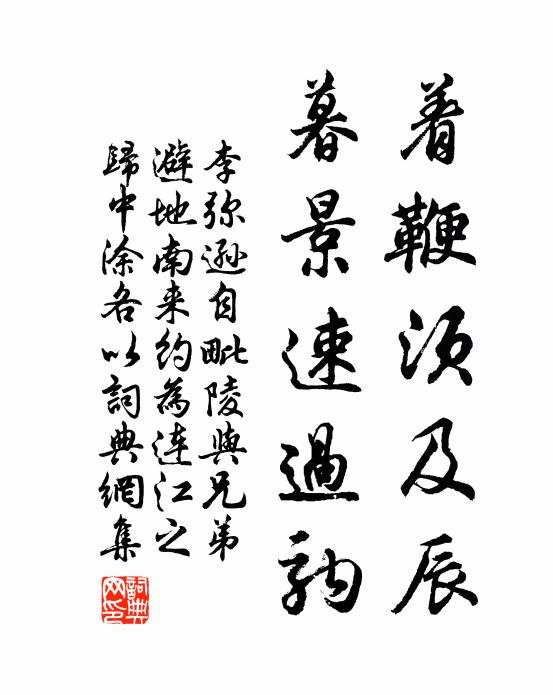 着鞭須及辰
暮景速過駒
李弥遜自毗陵與兄弟
避地南来約為連江之
歸中涂各以詞典網集
詞典網印